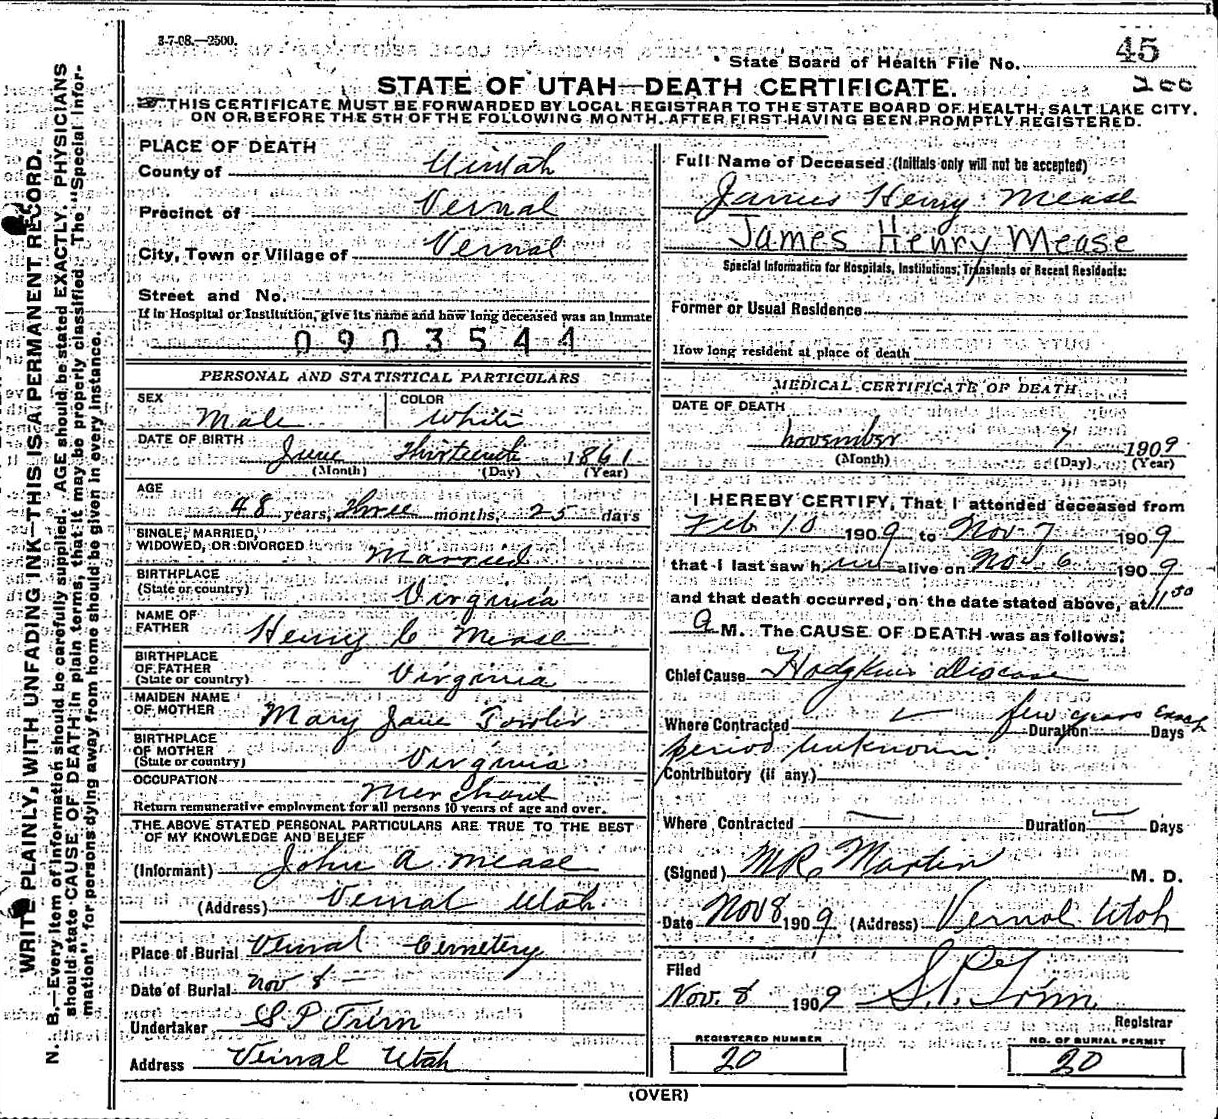 3-7-08.—2500.
45
State Board of Health File No.
STATE OF UTAH—DEATH CERTIFICATE.
200
THIS CERTIFICATE MUST BE FORWARDED BY LOCAL REGISTRAR TO THE STATE BOARD OF HEALTH, SALT LAKE CITY,
ON OR BEFORE THE 5TH OF THE FOLLOWING MONTH, AFTER FIRST HAVING BEEN PROMPTLY REGISTERED.
WRITE PLAINLY, WITH UNFADING INK—THIS IS A PERMANENT RECORD.
N. B.—Every item of information should be carefully supplied. AGE should be stated EXACTLY. PHYSICIANS
should state CAUSE OF DEATH in plain terms, that it may be properly classified. The "Special Infor-
mation" for persons dying away from home should be given in every instance.
PLACE OF DEATH
County of Uintah
Precinct of Vernal
City, Town or Village of Vernal
Street and No.
If in Hospital or Institution, give its name and how long deceased was an Inmate
0903544
PERSONAL AND STATISTICAL PARTICULARS
SEX Male COLOR White
DATE OF BIRTH June Thirteenth 1861
(Month) (Day) (Year)
AGE 48 years, Three months, 25 days
SINGLE, MARRIED,
WIDOWED, OR DIVORCED Married
BIRTHPLACE
(State or country) Virginia
NAME OF
FATHER Henry C Mease
BIRTHPLACE
OF FATHER
(State or country) Virginia
MAIDEN NAME
OF MOTHER Mary Jane Towler
BIRTHPLACE
OF MOTHER
(State or country) Virginia
OCCUPATION Merchant
Return remunerative employment for all persons 10 years of age and over.
THE ABOVE STATED PERSONAL PARTICULARS ARE TRUE TO THE BEST
OF MY KNOWLEDGE AND BELIEF
(Informant) John A Mease
(Address) Vernal Utah.
Place of Burial Vernal Cemetery
Date of Burial Nov 8
Undertaker S P Trim
Address Vernal Utah
Full Name of Deceased (Initials only will not be accepted)
James Henry Mease
James Henry Mease
Special Information for Hospitals, Institutions, Transients or Recent Residents:
Former or Usual Residence
How long resident at place of death
MEDICAL CERTIFICATE OF DEATH
DATE OF DEATH
November 7 1909
(Month) (Day) (Year)
I HEREBY CERTIFY, That I attended deceased from
Feb 10 1909 to Nov 7 1909
that I last saw him alive on Nov 6 1909
and that death occurred, on the date stated above, at 11 30
A M. The CAUSE OF DEATH was as follows:
Chief Cause Hodgkins disease
Where Contracted few years Exact
Duration Days
period unknown
Contributory (if any)
Where Contracted Duration Days
(Signed) M R Martin M. D.
Date Nov 8 1909 (Address) Vernal Utah
Filed
Nov. 8 1909 S. P. Trim
Registrar
REGISTERED NUMBER
20
NO. OF BURIAL PERMIT
20
(OVER)